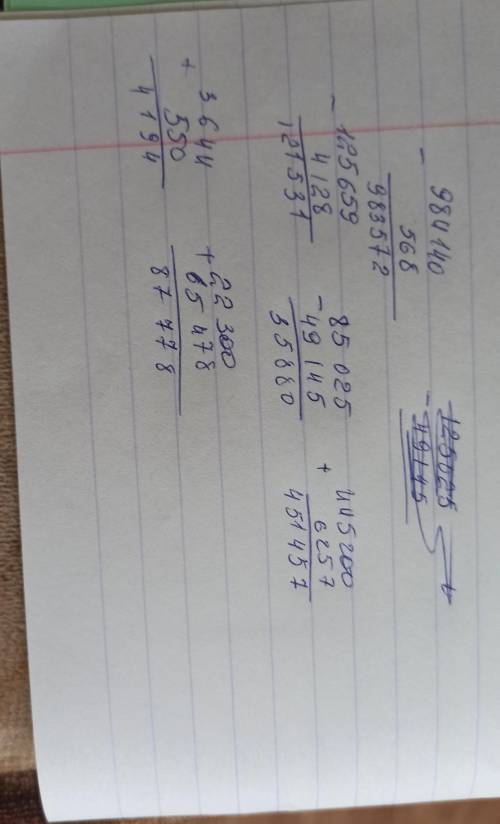 984140
- 568
983572
- 125659
4128
121531
- 85025
49145
35880
+ 445200
6257
451457
+ 3644
550
4194
+ 22300
65478
87778